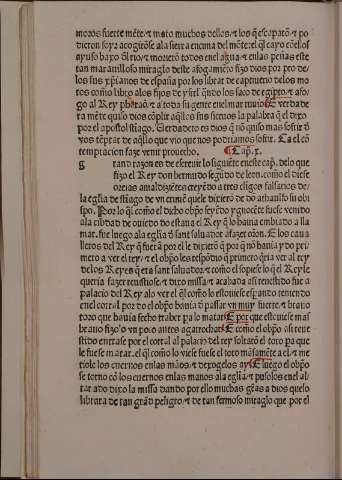 moros fuerte mẽte: ⁊ mato muchos dellos: ⁊ los q̃ escaparõ ⁊ po
dieron foyr acogiẽrõse ala sierra encima del mõte: el q̃l cayo cõ ellos
ayuso baxo el rio/ ⁊ morierõ todos enel agua ⁊ enlas peñas este
tan marauilloso miraglo deste afogamiẽto fizo dios por pro de
los sus xp̃ianos de españa por los librar de captuerio delos mo
ros como libro alos fijos de ysrl' quãdo los saco de egipto: ⁊ afo
go al Rey pharaõ: ⁊ a toda su gente enel mar ruuio E verdade
ra mẽte quiso dios cõplir aq̃llos sus sieruos la palabra q̃ el dixo
por el apostol s̃tiago. Verdadero es dios q̃ nõ quiso mas sofrir ð
vos tẽptar de aq̃llo que vio que nos podriamos sofrir. Ca el cõ
temptacion faze venir prouecho. ¶ Cap. x.
g rand razon es de escreuir lo siguiẽte en este cap̃. delo que
fizo el Rey don bermudo segũdo de leon. como el diese
orejas a maldiziẽtes creyẽdo a tres clerigos falsarios de
la eglia de s̃tiago de vn crimẽ q̃uele dixerõ de dõ athaulfo su obi
spo. Por lo q̃l como el dicho obp̃o seyẽdo ynocẽte fuese venido
ala cibdad de ouiedo do estaua el Rey q̃ lo hauia embiado a lla
mar. fue luego ala eglia ð sant saluador a fazer oraciõ. E los caua
lleros del Rey q̃ fuerõ por el le dixierõ q̃ por q̃ nõ hauia ydo pri
mero a ver el rey/ ⁊ el obp̃o les respõdio q̃ primero q̃ria ver al rey
delos Reyes q̃ era sant saluador: ⁊ como el sopiese lo q̃ el Rey le
queria fazer reuistiose. ⁊ dixo missa: ⁊ acabada asi reuestido fue a
palacio del Rey alo ver el q̃l como lo estouiese esperando teniendo
enel corral por do el obp̃o hauia ð passar vn muy fuerte/ ⁊ brauo
toro que hauia fecho traher pa lo matar E por que estouiese mas
brauo fizolo vn poco antes agarrochar E como el obp̃o asi reue
stido entrase por el corral al palacio del rey soltarõ el toro para que
le fuese matar. el q̃l como lo viese fuese el toro mãsamẽte a el/ ⁊ me
tiole los cuernos enlas manos/ ⁊ dexogelos ay E luego el obp̃o
se torno cõ los cuernos enlas manos ala eglia/ ⁊ pusolos enel al
tar ado dixo la missa dando por ello muchas gr̃as a dios que lo
librara de tan grãd peligro/ ⁊ de tan fermoso miraglo que por el